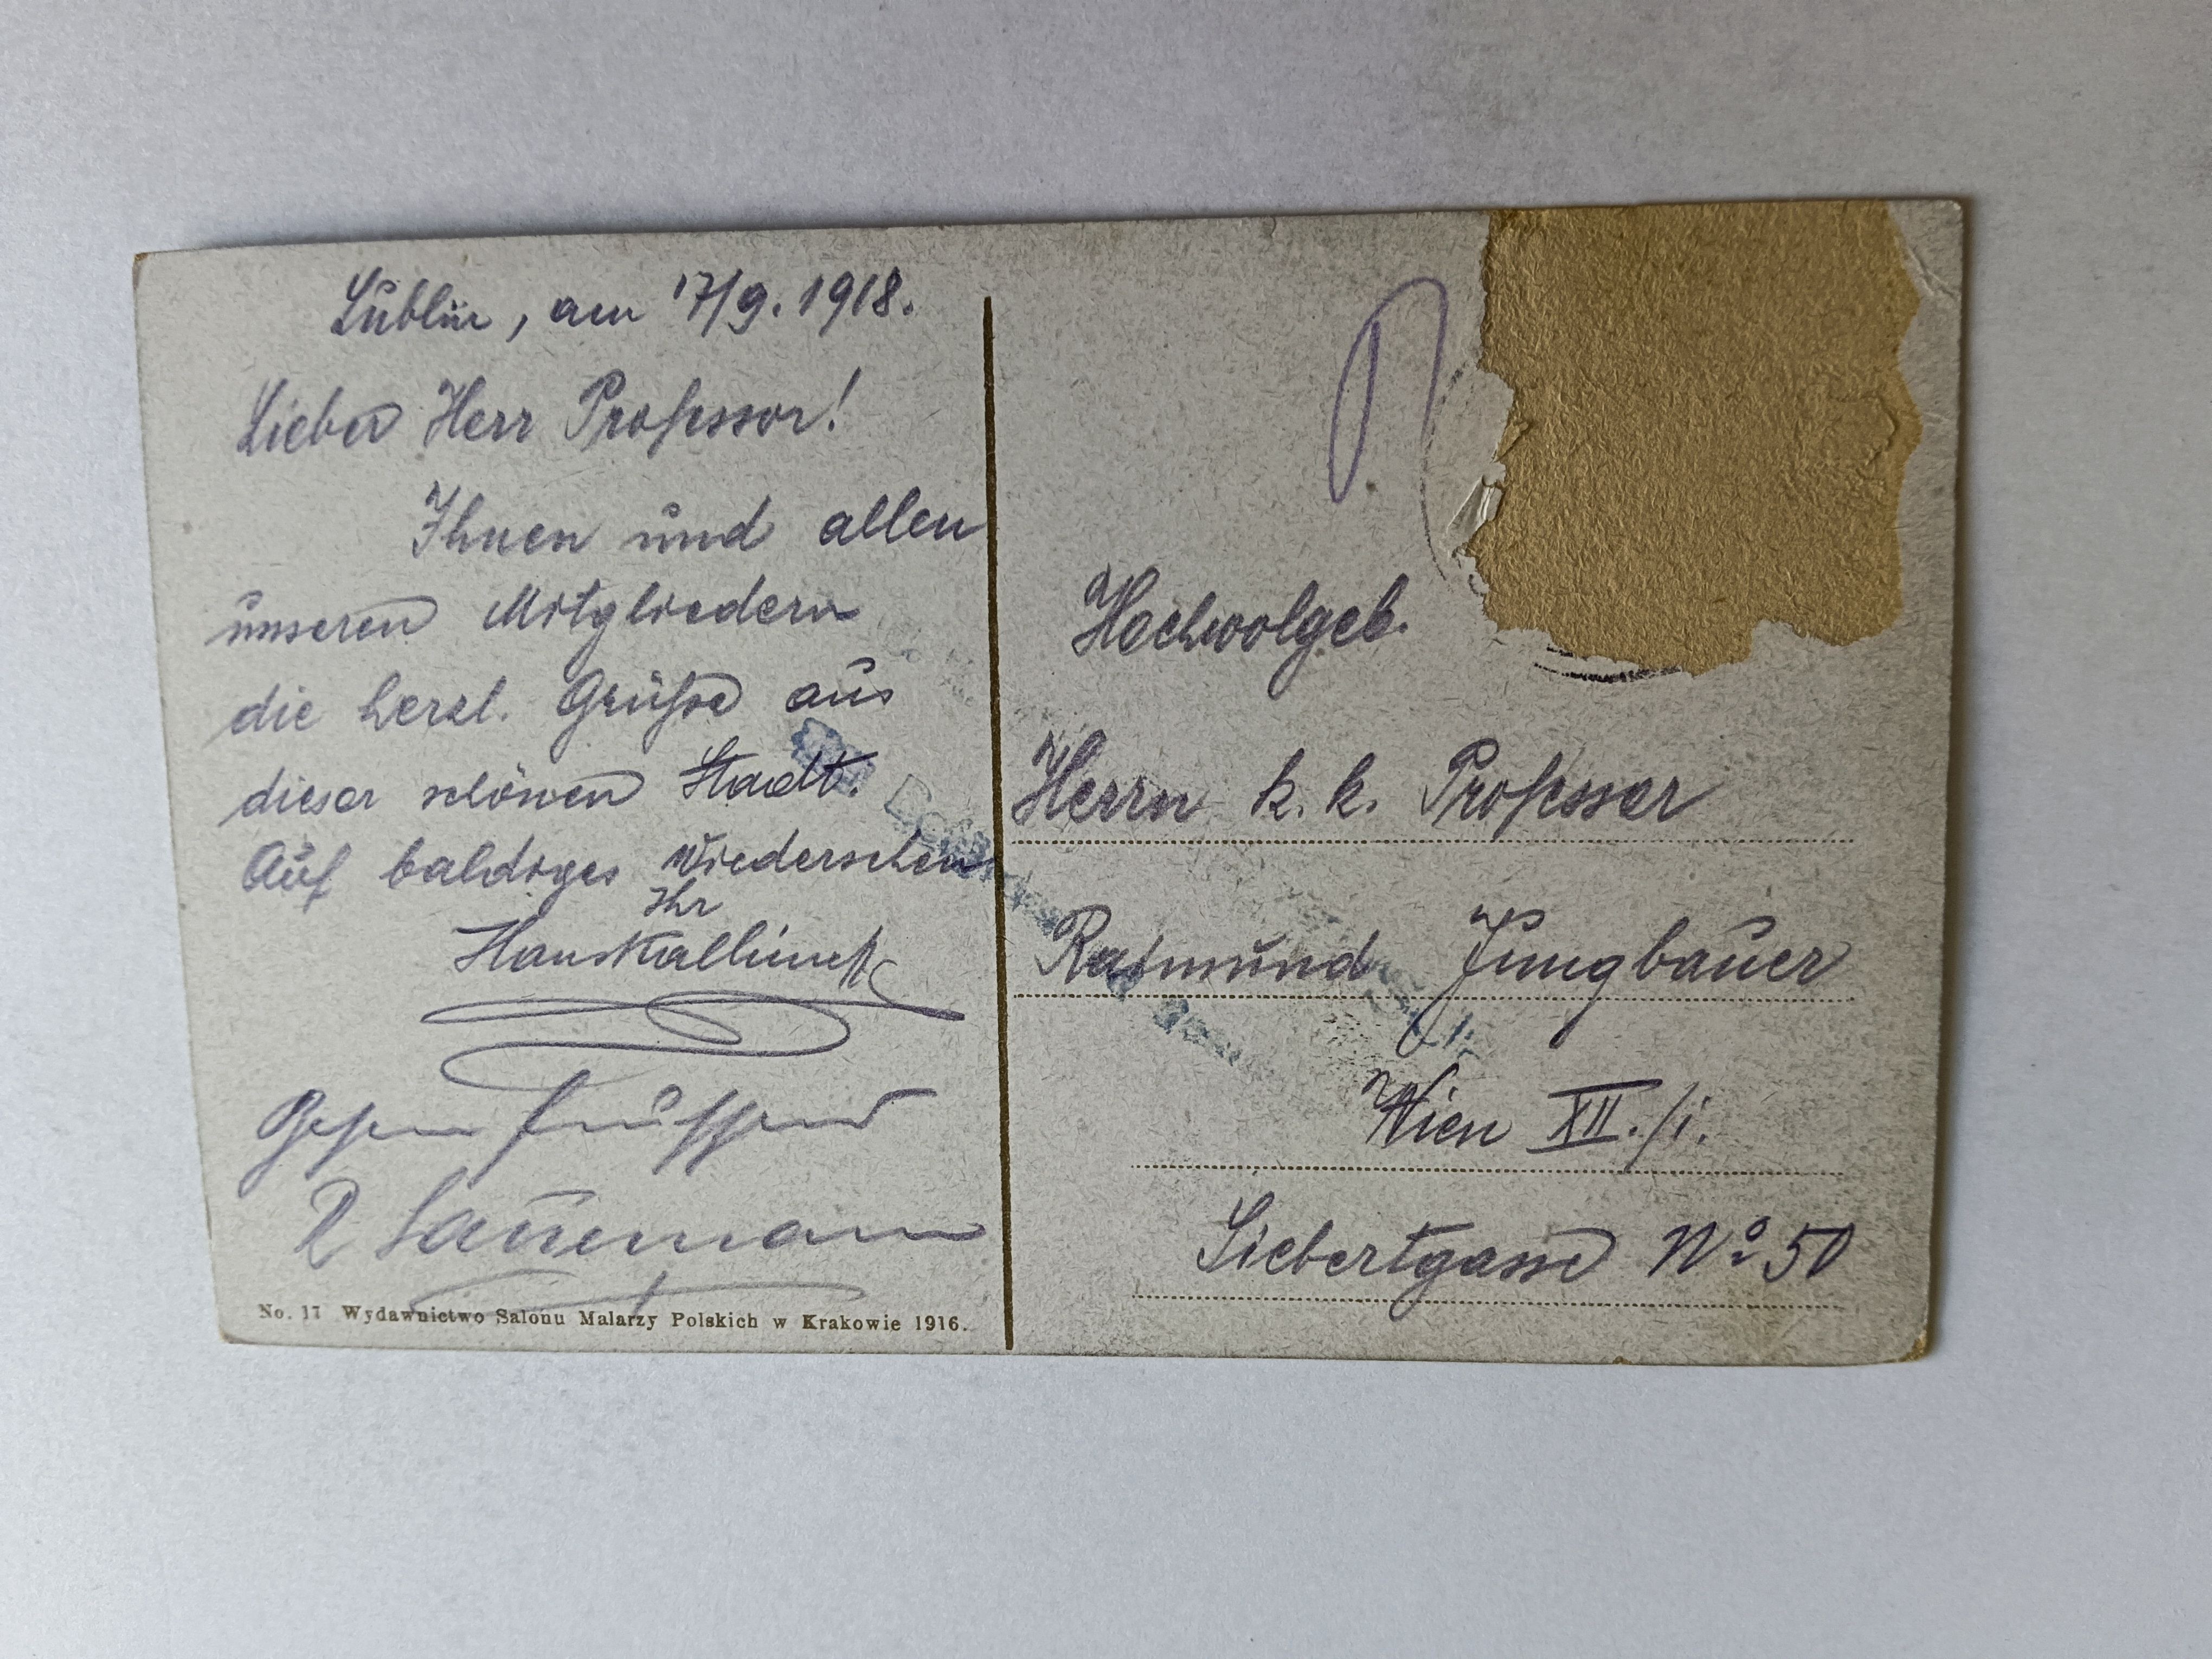 Lublin, am 17/9. 1918.
Lieber Herr Professor!
Ihnen und allen
unseren Mitgliedern
die herzl. Grüße aus
dieser schönen Stadt.
Auf baldiges Wiedersehen
Ihr
Hans
No. 17 Wydawnictwo Salonu Malarzy Polskich w Krakowie 1916.
Hochwolgeb.
Herrn k. k. Professor
Raimund Jungbauer
Wien XII./1.
Siebertgasse No 50